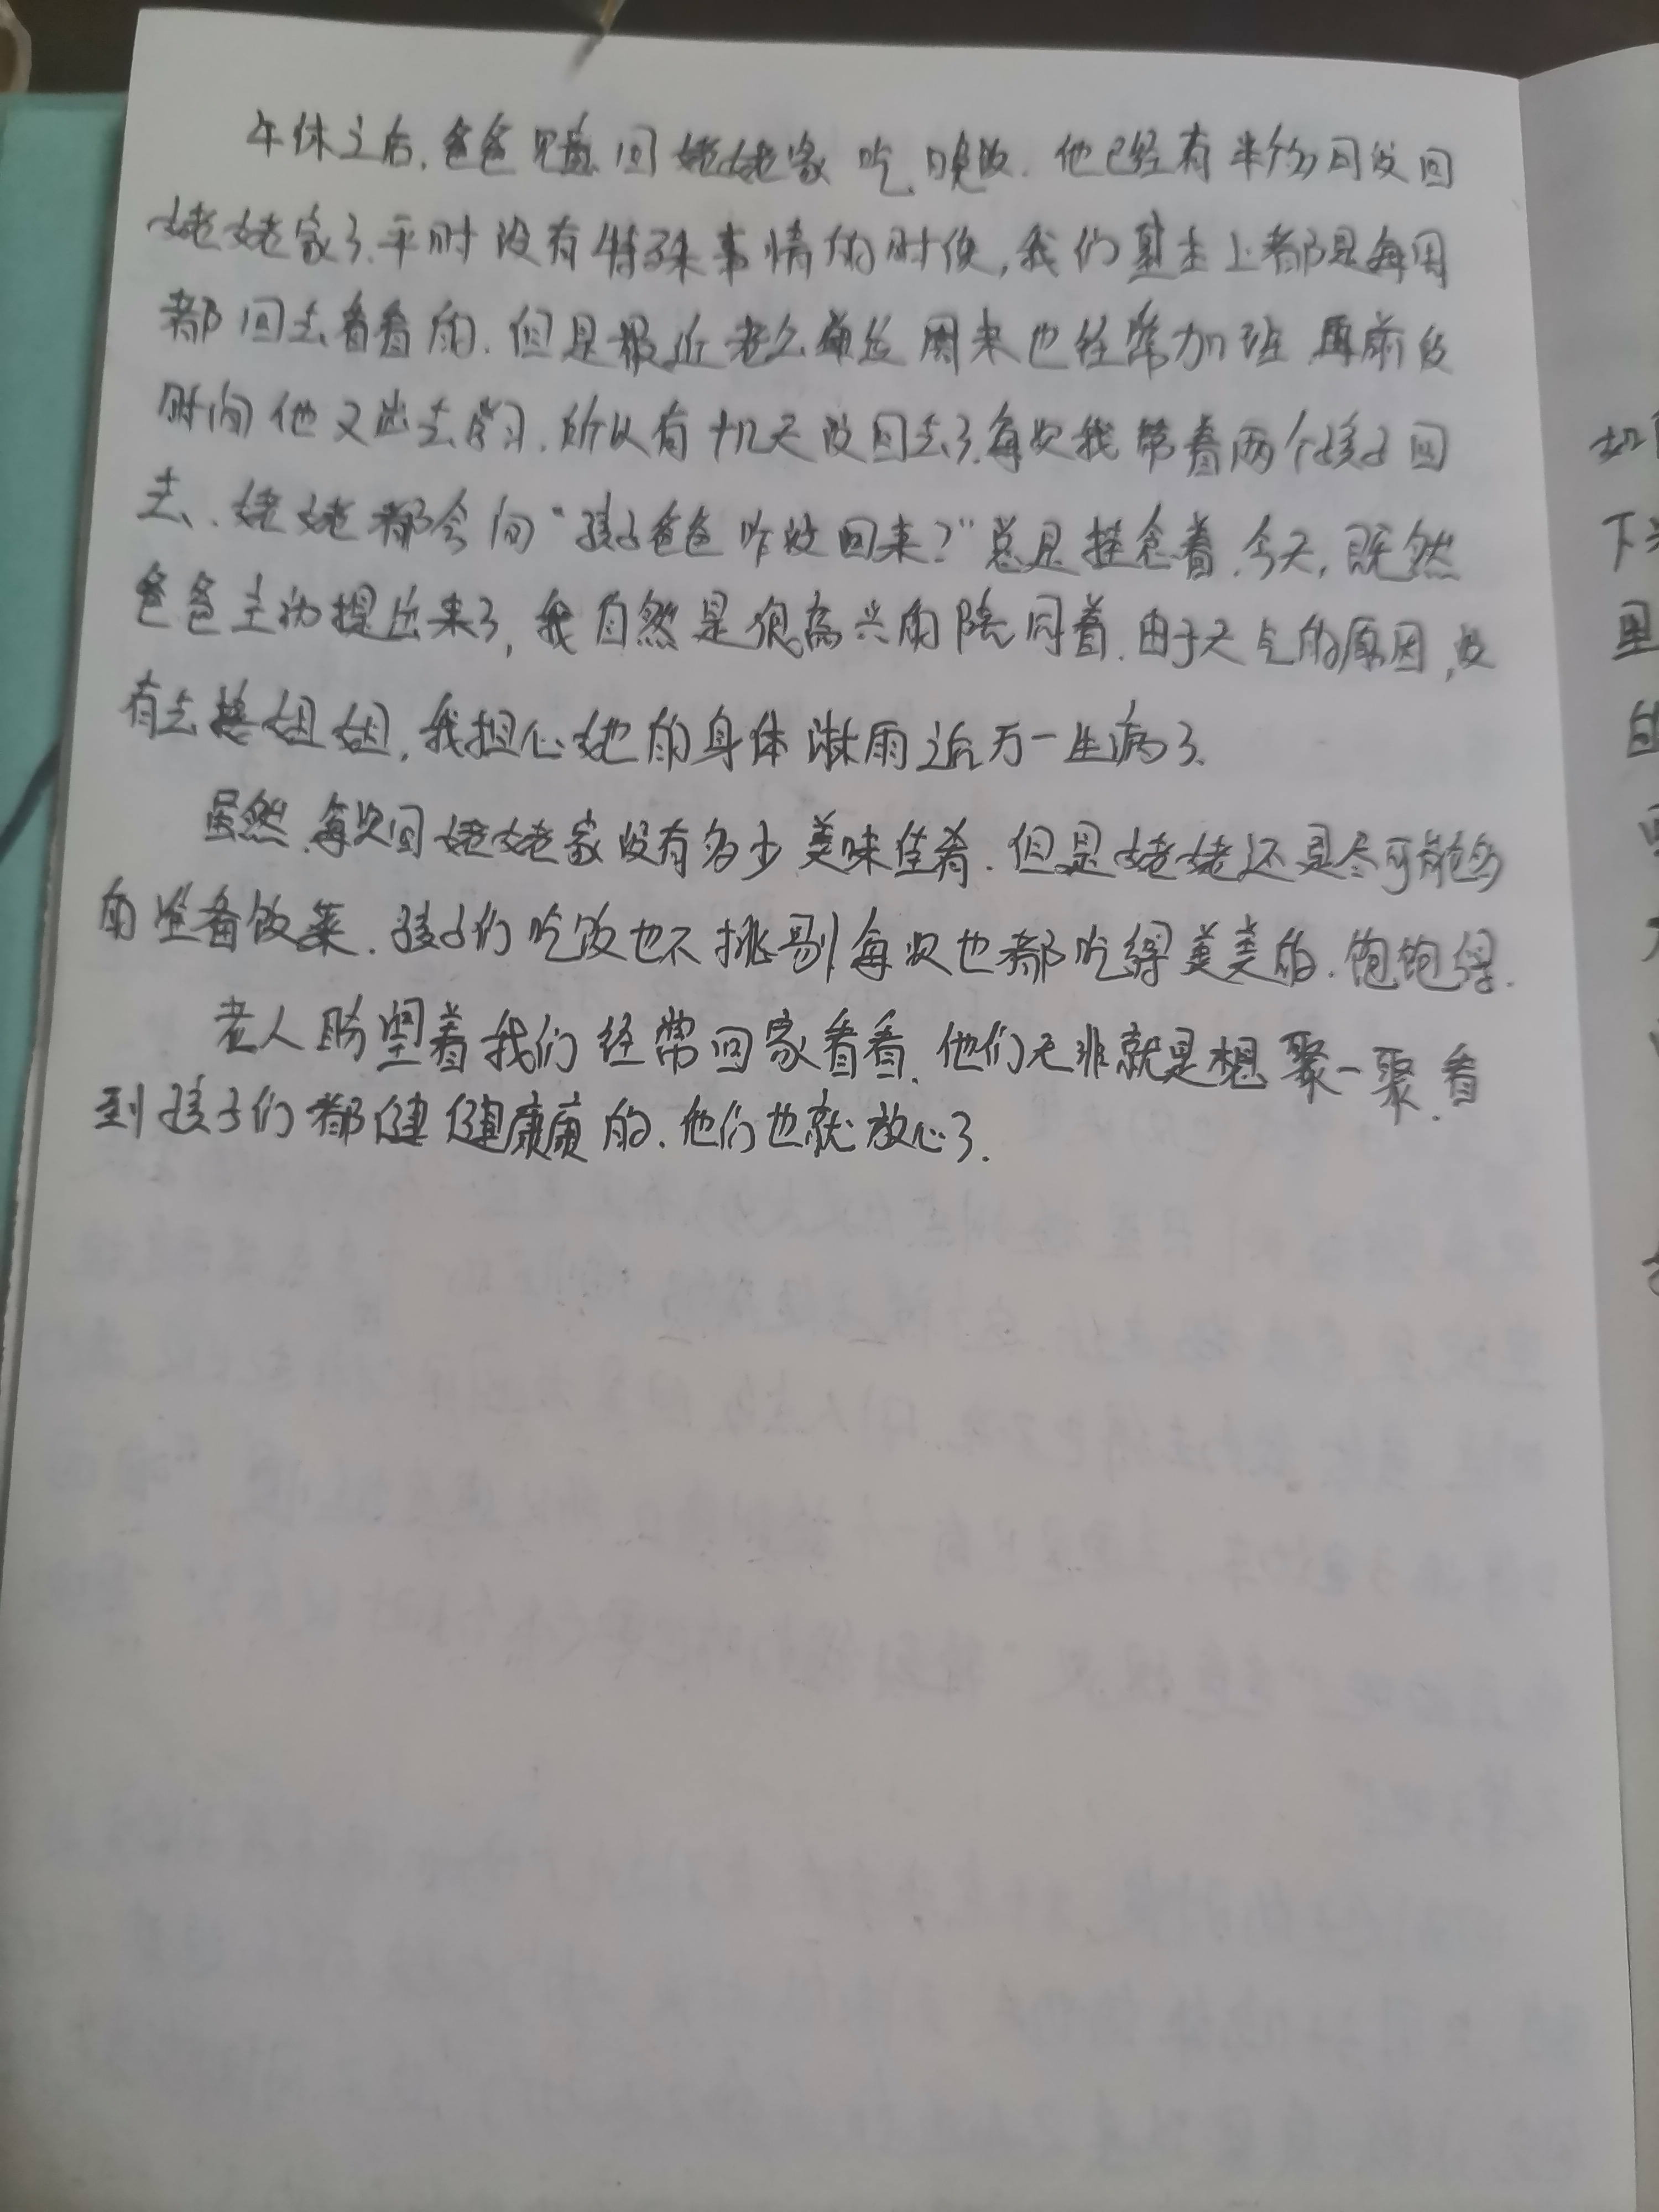 午休之后,爸爸回姥姥家吃晚饭.他已经有半个多月没回
姥姥家了.平时没有特殊事情的时候,我们基本上都是每周
都回去看看的.但是最近老公单位周末也经常加班 再前段
时间他又出去学习.所以有十几天没回去了.每次我带着两个孩子回
去、姥姥都会问“孩子爸爸咋没回来?”总是挂念着.今天,既然
爸爸主动提出来了,我自然是很高兴的陪同着.由于天气的原因,没
有去接姐姐,我担心她的身体淋雨之后万一生病了.
虽然.每次回姥姥家没有多少美味佳肴.但是姥姥还是尽可能多
的准备饭菜.孩子们吃饭也不挑剔每次也都吃得美美的.饱饱得.
老人盼望着我们经常回家看看.他们无非就是想聚一聚.看
到孩子们都健健康康的.他们也就放心了.
下
里
的